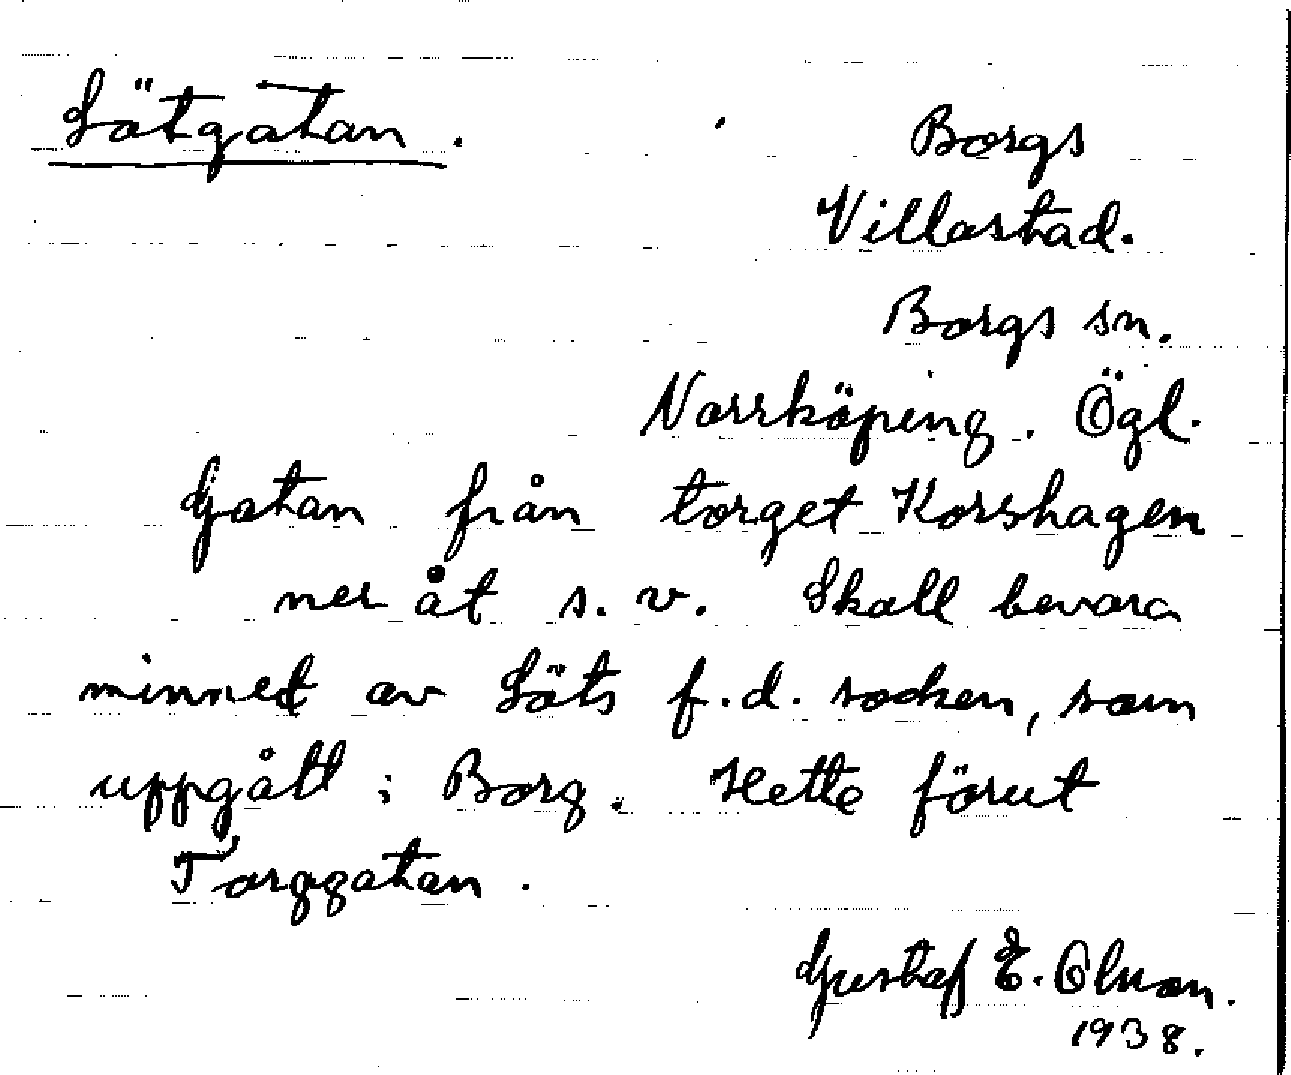 Lötgatan.
Borgs
Villastad.
Borgs sn.
Norrköping. Ögl.
Gatan från torget Korshagen
ner åt s. v. Skall bevara
minnet av Löts f.d. socken, som
uppgått i Borg. Hette förut
Torggatan.
Gustaf E. Olsson.
1938.